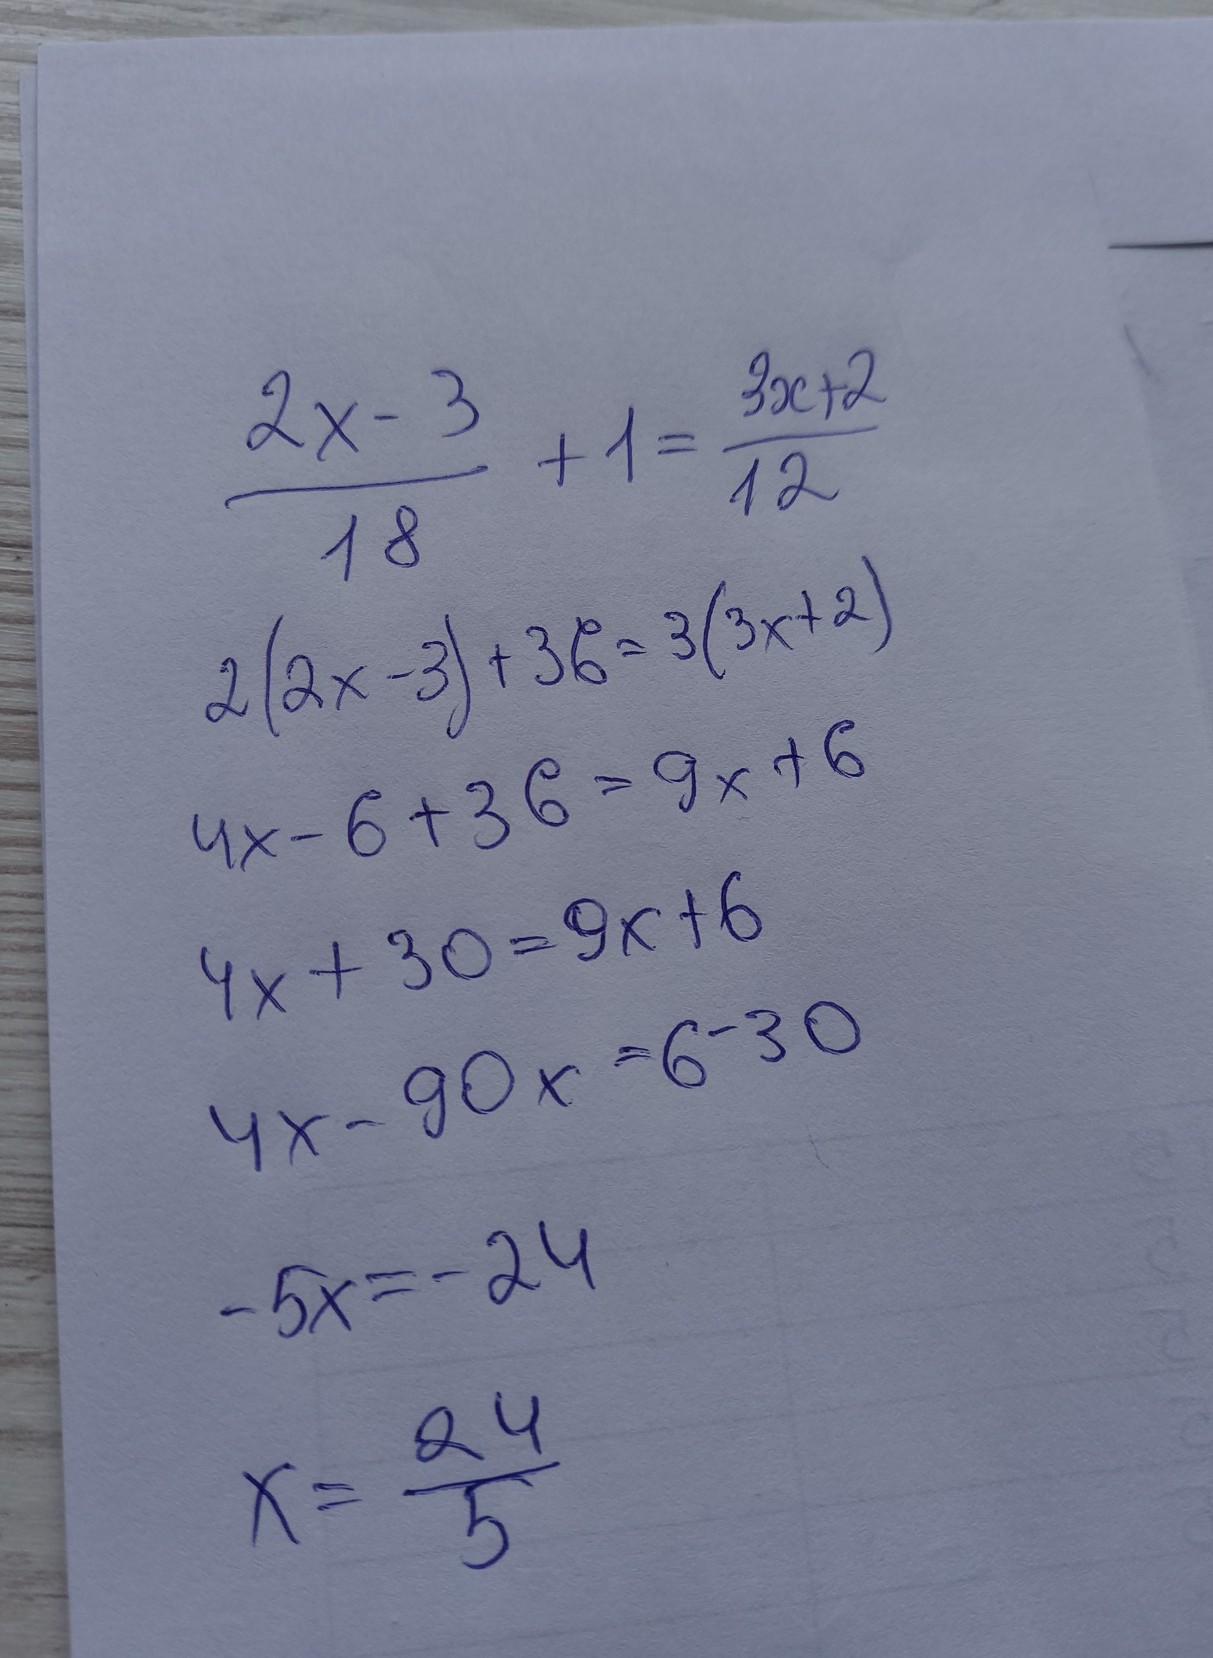 (2x-3)/18 + 1 = (3x+2)/12
2(2x-3)+36=3(3x+2)
4x-6+36=9x+6
4x+30=9x+6
4x-90x=6-30
-5x=-24
x=24/5